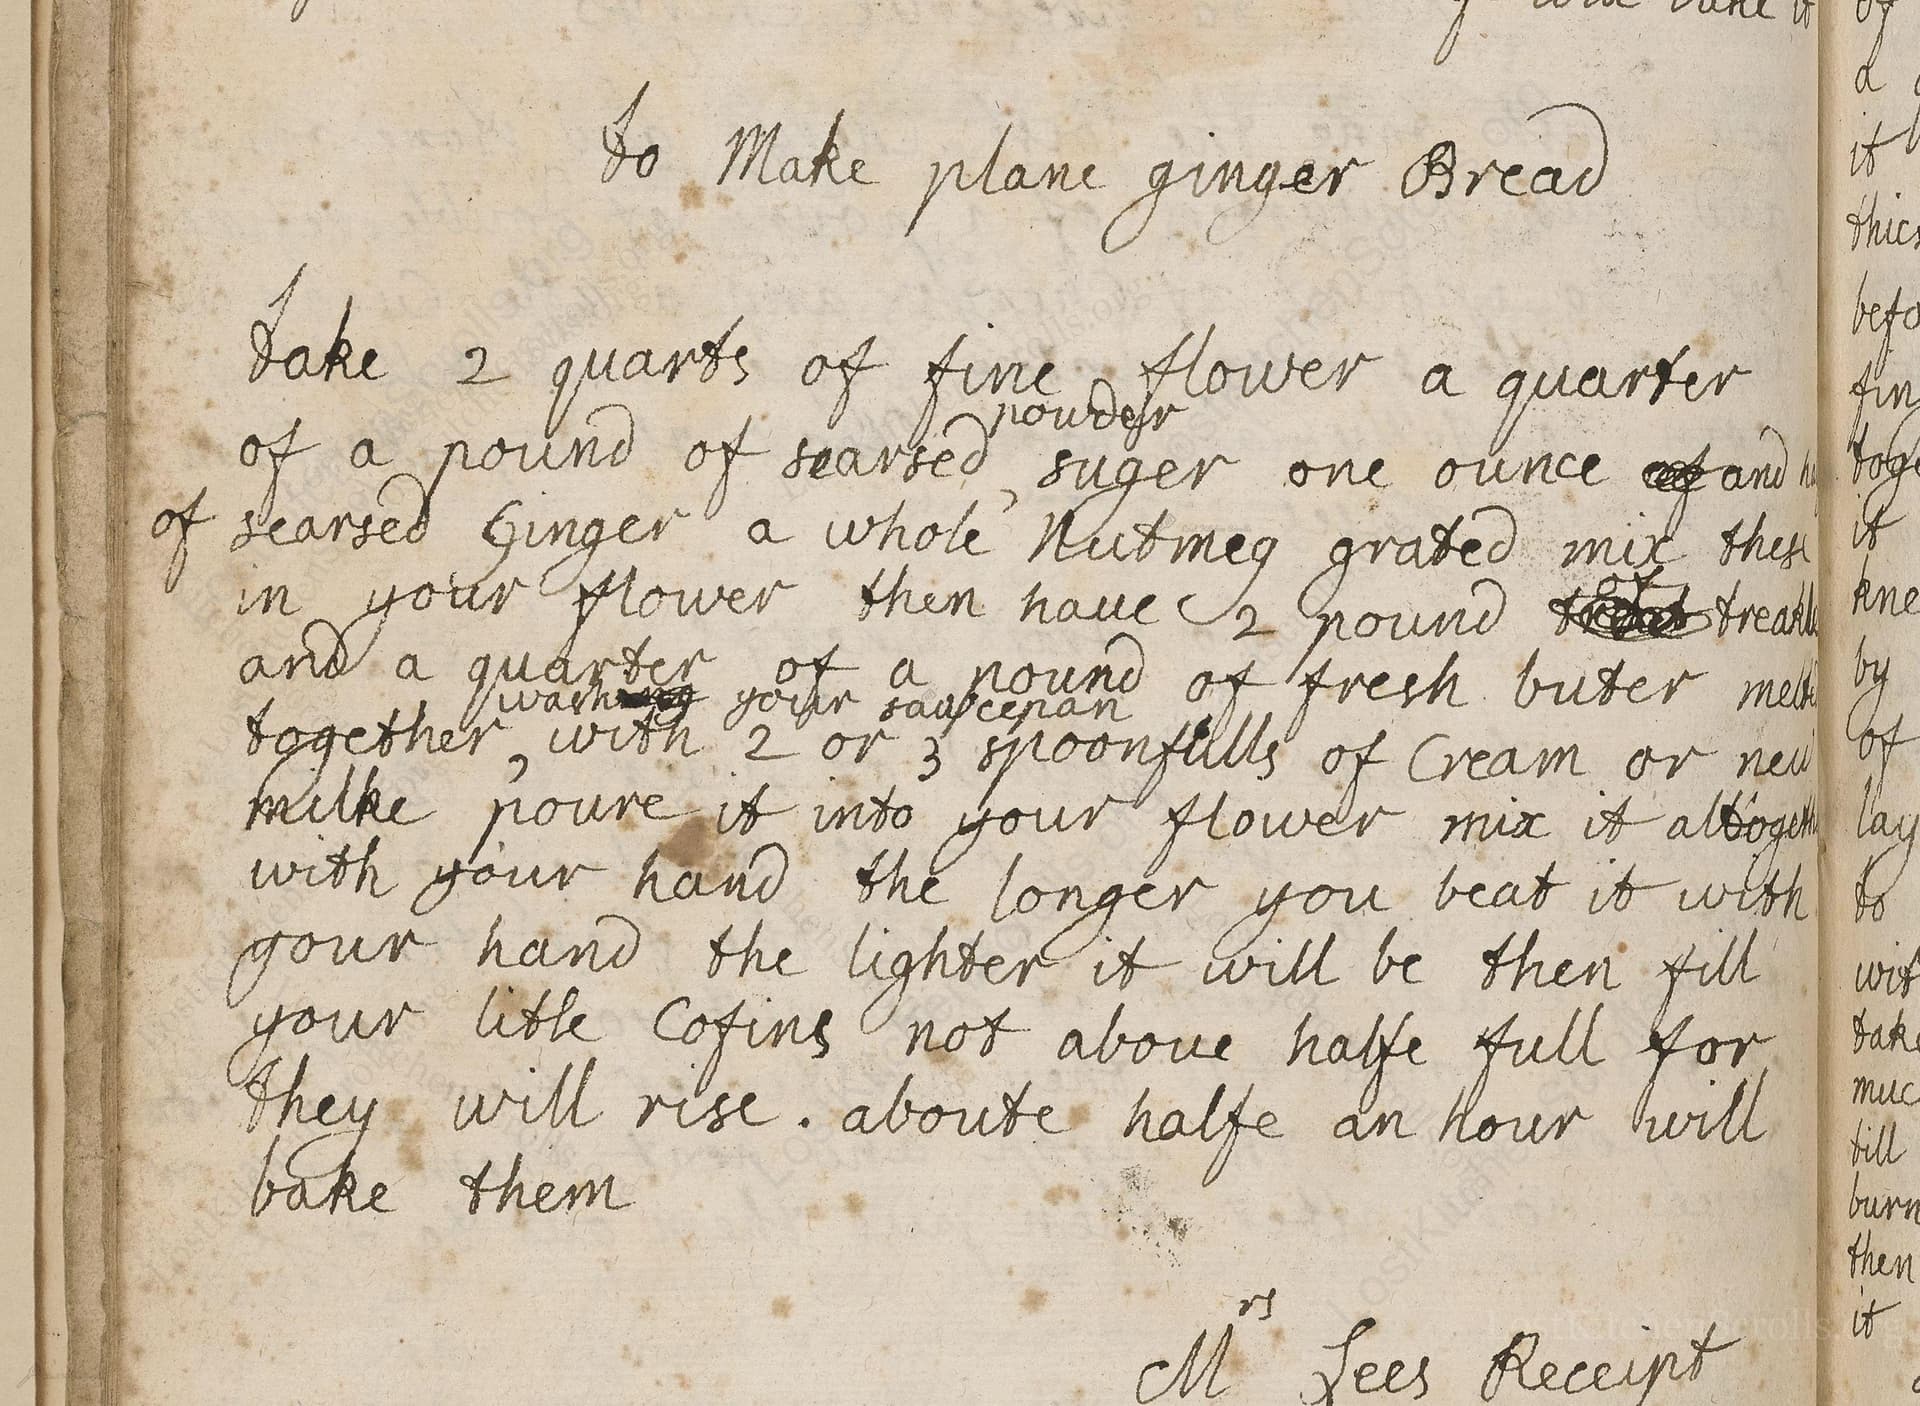 to Make plane ginger Bread
take 2 quarts of fine flower a quarter
powder
of a pound of searsed, suger one ounce and
of searsed Ginger a whole Nutmeg grated mix these
in your flower then haue 2 pound of treakle
and a quarter of a pound of fresh buter
wash your saucepan
together, with 2 or 3 spoonfulls of Cream or new
milke poure it into your flower mix it
with your hand the longer you beat it with
your hand the lighter it will be then fill
your litle Cofins not aboue halfe full for
they will rise. aboute halfe an hour will
bake them
Mrs Lees Receipt
of
a
it
it
by
of
lay
to
till
then
it